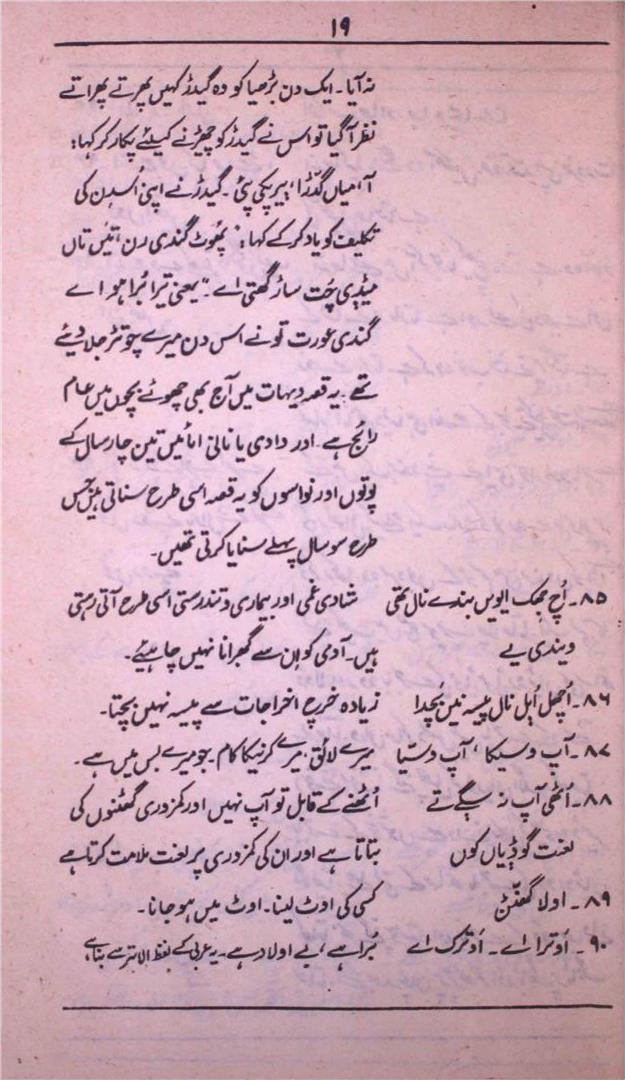 ۱۹
نہ آیا۔ ایک دن بڑھیا کو وہ گیدڑ کہیں پھرتے پھراتے
نظر آگیا تو اس نے گیدڑ کو چھڑنے کیلئے پکار کر کہا:
آ، میاں گدّڑا، پیر پکی پئی۔ گیدڑ نے اپنی اُس دن کی
تکلیف کو یاد کر کے کہا: پھُوٹ گندی رن، تئیں تاں
میڈی چُت ساڑ گھتی اے۔" یعنی تیرا بُرا ہو اے
گندی عورت تو نے اُس دن میرے چوتڑ جلا دیئے
تھے۔ یہ قصہ دیہات میں آج بھی چھوٹے بچوں میں عام
رائج ہے۔ اور دادی یا نانی امائیں تین چار سال کے
پوتوں اور نواسوں کو یہ قصہ اسی طرح سناتی ہیں جس
طرح سو سال پہلے سنایا کرتی تھیں۔
۸۵۔ اُچ جھِک ایویں بندے نال تھی شادی غمی اور بیماری و تندرستی اسی طرح آتی رہتی
ویندی ہے ہیں۔ آدمی کو اِن سے گھبرانا نہیں چاہیئے۔
۸۶۔ اُچھل اُبل نال پیسہ نیں بچدا زیادہ خرچ اخراجات سے پیسہ نہیں بچتا۔
۸۷۔ آپ وسیکا، آپ وسّیا میرے لائق، میرے کرنیکا کام۔ جو میرے بس میں ہے۔
۸۸۔ اُٹھی آپ نہ سگے تے اُٹھنے کے قابل تو آپ نہیں اور کمزوری گھٹنوں کی
لعنت گوڈیاں کوں بتاتا ہے اور ان کی کمزوری پر لعنت ملامت کرتا ہے
۸۹۔ اولا گھنّن کسی کی اوٹ لینا۔ اوٹ میں ہو جانا۔
۹۰۔ اَوترا اے۔ اَوترک اے بُرا ہے، بے اولاد ہے۔ یہ عربی کے لفظ الابتر سے بنا ہے،